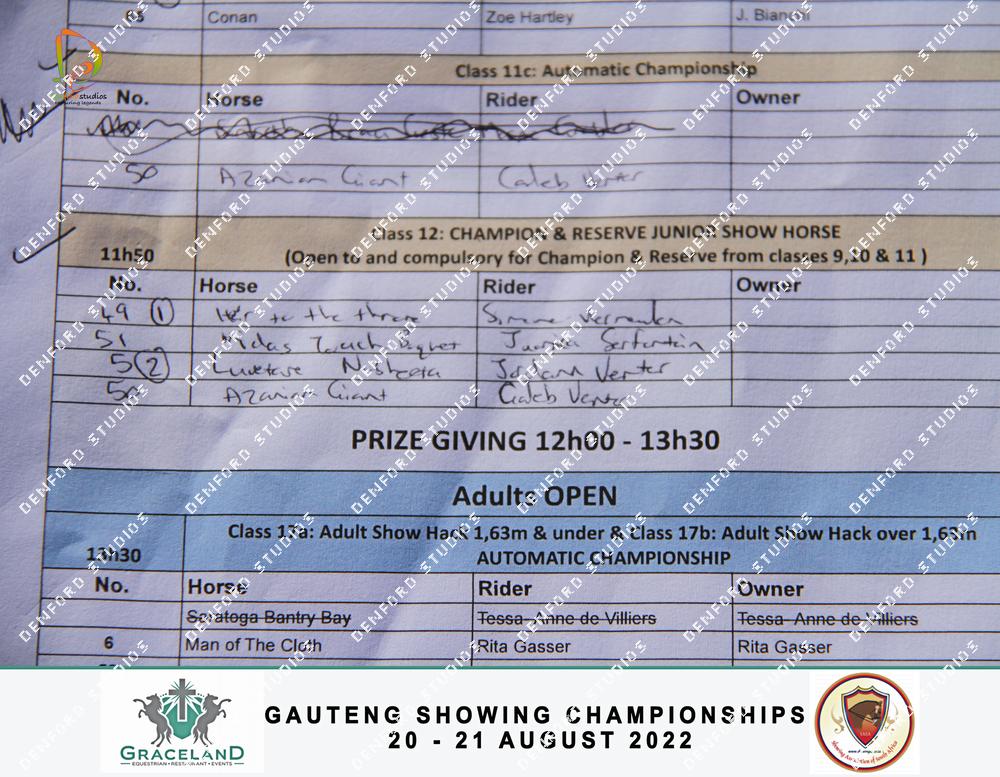 65 Conan Zoe Hartley
Class 11c: Automatic Championship
No. Horse Rider Owner
50 Azanian Giant Caleb Venter
Class 12: CHAMPION & RESERVE JUNIOR SHOW HORSE
11h50 (Open to and compulsory for Champion & Reserve from classes 9,10 & 11 )
No. Horse Rider Owner
49 (1) Heir to the throne
51 Midas Touch
5 (2) Jordann Venter
50 Azanian Giant Caleb Venter
PRIZE GIVING 12h00 - 13h30
Adults OPEN
Class 17a: Adult Show Hack 1,63m & under & Class 17b: Adult Show Hack over 1,63m
13h30 AUTOMATIC CHAMPIONSHIP
No. Horse Rider Owner
Saratoga Bantry Bay Tessa-Anne de Villiers Tessa-Anne de Villiers
6 Man of The Cloth Rita Gasser Rita Gasser
GRACELAND
EQUESTRIAN • RESTAURANT • EVENTS
GAUTENG SHOWING CHAMPIONSHIPS
20 - 21 AUGUST 2022
DENFORD STUDIOS